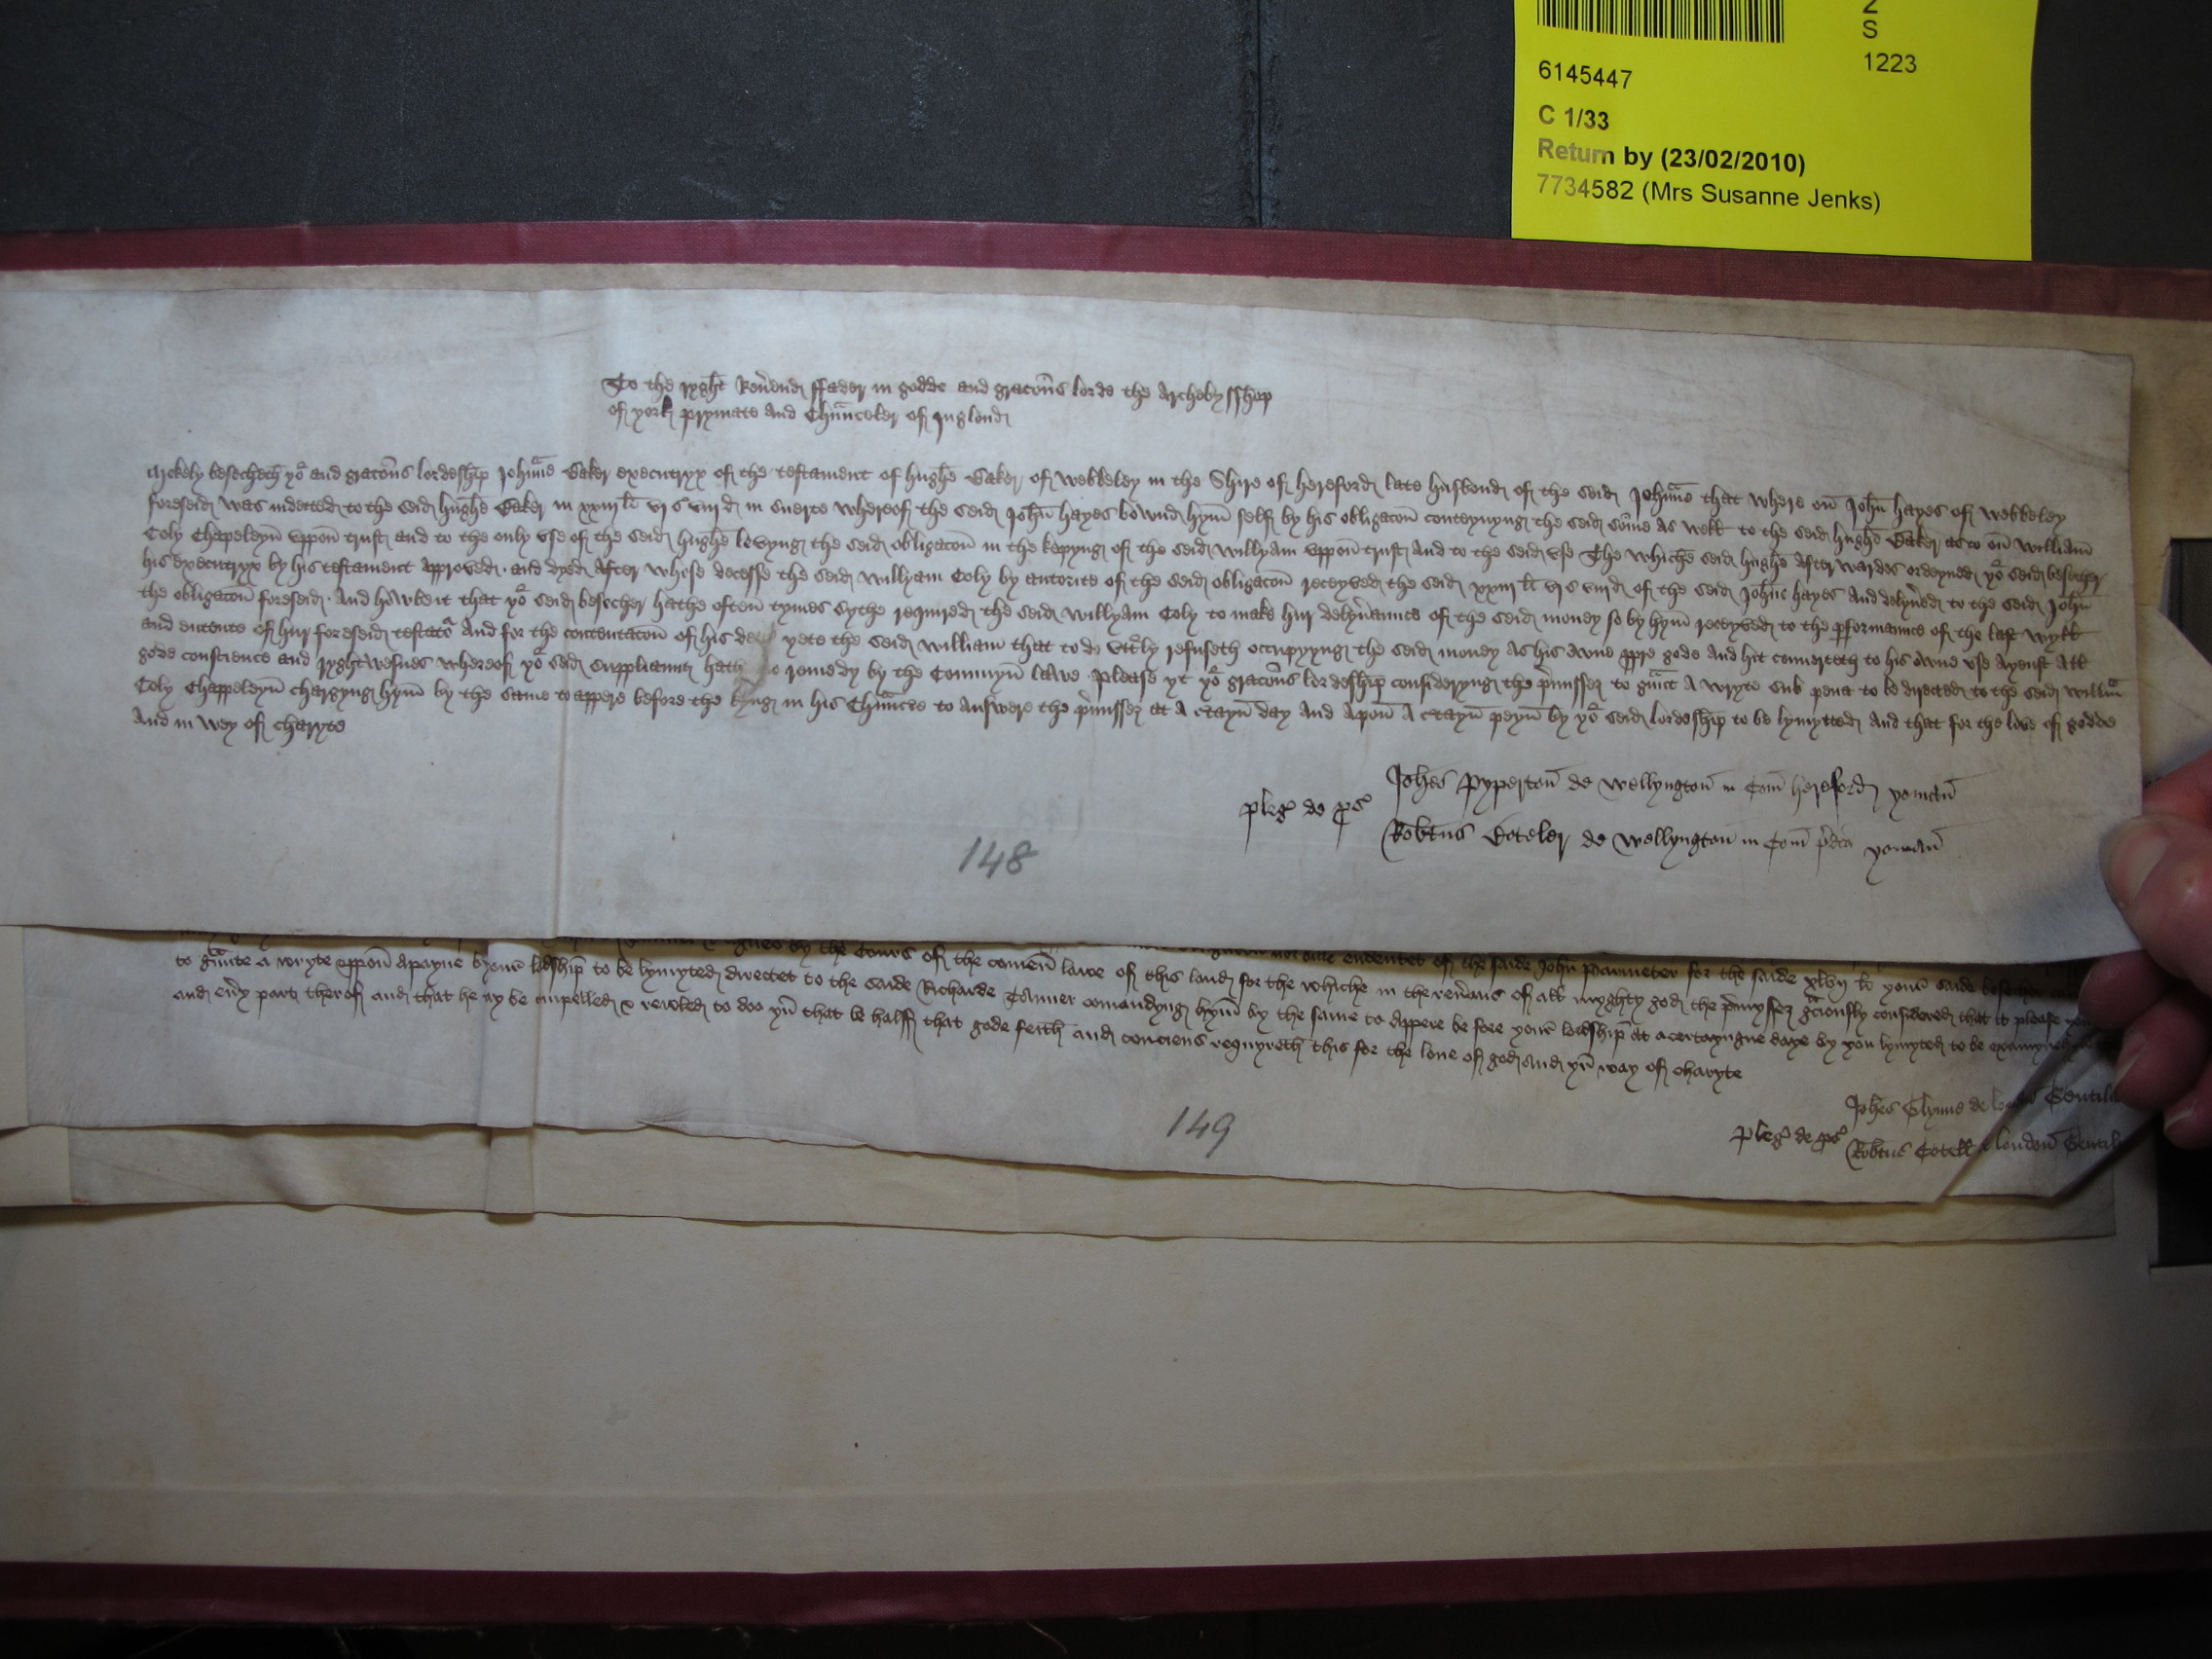 2
S
1223
6145447
C 1/33
Return by (23/02/2010)
7734582 (Mrs Susanne Jenks)
To the ryght Rev'end ffader in godde and gracous lorde the Archebysshop
of york prymate and Chaunceler of Inglond
Mekely besecheth yor and gracous lordeship Johane Baker executryx of the testament of hughe Baker of webbeley in the Shire of hereford late husbond of the seid Johane that where on John hayes of webbeley
foreseid was indetted to the seid hughe Baker in xxiij li vj s viij d in suerte whereof the seid John hayes bownd hym self by his obligacon conteynyng the seid some as well to the seid hughe Baker as to on William
Coly Chapeleyn uppon trust and to the only use of the seid hughe levyng the seid obligacon in the kepyng of the seid Willyam uppon trust and to the seid use The whiche seid hughe afterwardes ordeyned yor seid besecher
his executryx by his testament approved and dyed After whose decesse the seid Willyam Coly by autorite of the seid obligacon receyved the seid xxiij li vj s viij d of the seid John hayes And delyv'ed to the seid John
the obligacon foreseid And howbeit that yor seid besecher hathe often tymes sythe required the seid Willyam Coly to make hur delyv'aunce of the seid money so by hym receyved to the p'formaunce of the last wyll
and entente of hur foreseid testator And for the contentacon of his yete the seid William that to do utt'ly refuseth occupyyng the seid money as his owne p'pre gode And hit converteth to his owne use Ayenst All
gode conscience and ryghtwesnes whereof yor seid suppliaunt hath no remedy by the Comuyn lawe Please yt yor gracous lordeship consideryng the p'misses to graunt A wryte sub pena to be directed to the seid Willm
Coly Chappeleyn chargyng hym by the same to appere before the kyng in his Chauncre to answere the p'misses at A c'tayn day And Apon A c'tayn peyn by yor seid lordeship to be lymytted And that for the love of godde
And in wey of charyte
pleg' de ps' Johes Pyperton de Wellyngton in Com hereford yoman
Robtus Boteler de Wellyngton in Com p'dco yoman
148
by the Cours of the comen lawe of this land for the whiche in the rev'ans of all myghty god the p'mysses gciously considered that it please
to graunte a wryte uppon apayne by your lordship to be lymyted directet to the saide Richarde Tanner comandyng hym by the same to appere be fore your lordship at acertayngne daye by you lymyted to be
and ev'y part therof and that he ay be impelled & reuled to doo yn that be halff that gode feith and conciens requyreth this for the love of god and yn way of charyte
pleg' de ps' Johes Glynne de Gentil
Robtus Cotell london Gentil
149